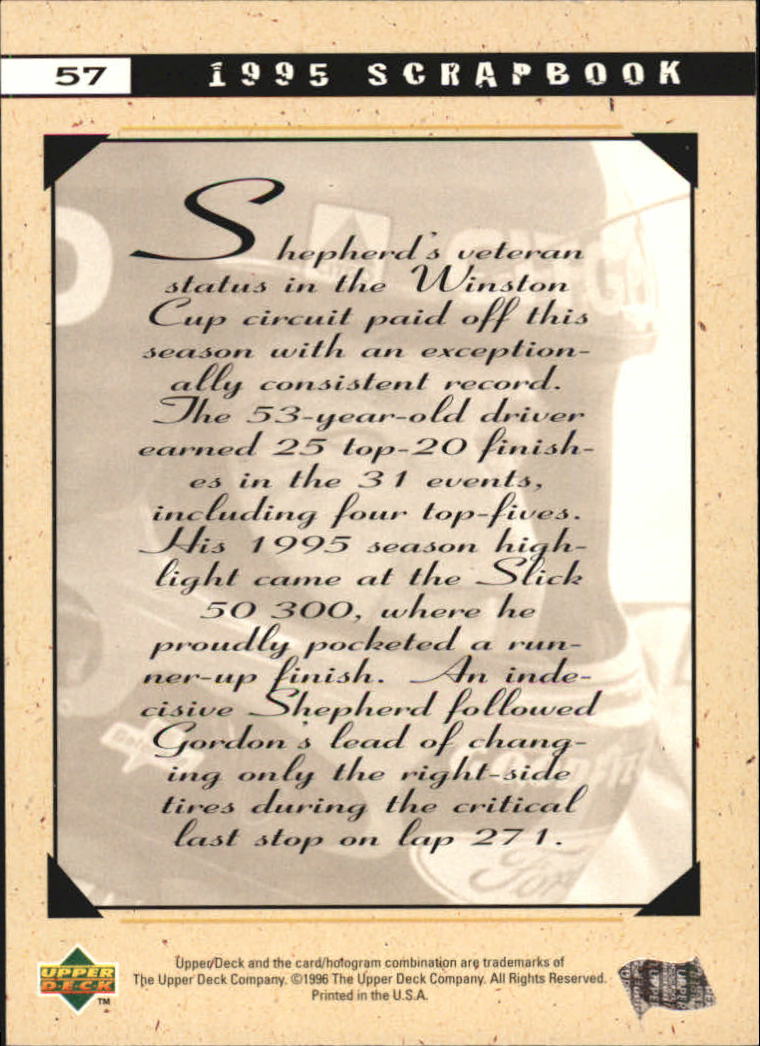 57 1995 SCRAPBOOK
Shepherd's veteran
status in the Winston
Cup circuit paid off this
season with an exception-
ally consistent record.
The 53-year-old driver
earned 25 top-20 finish-
es in the 31 events,
including four top-fives.
His 1995 season high-
light came at the Slick
50 300, where he
proudly pocketed a run-
ner-up finish. An inde-
cisive Shepherd followed
Gordon's lead of chang-
ing only the right-side
tires during the critical
last stop on lap 271.
Ford
UPPER
DECK
TM
Upper Deck and the card/hologram combination are trademarks of
The Upper Deck Company. ©1996 The Upper Deck Company. All Rights Reserved.
Printed in the U.S.A.